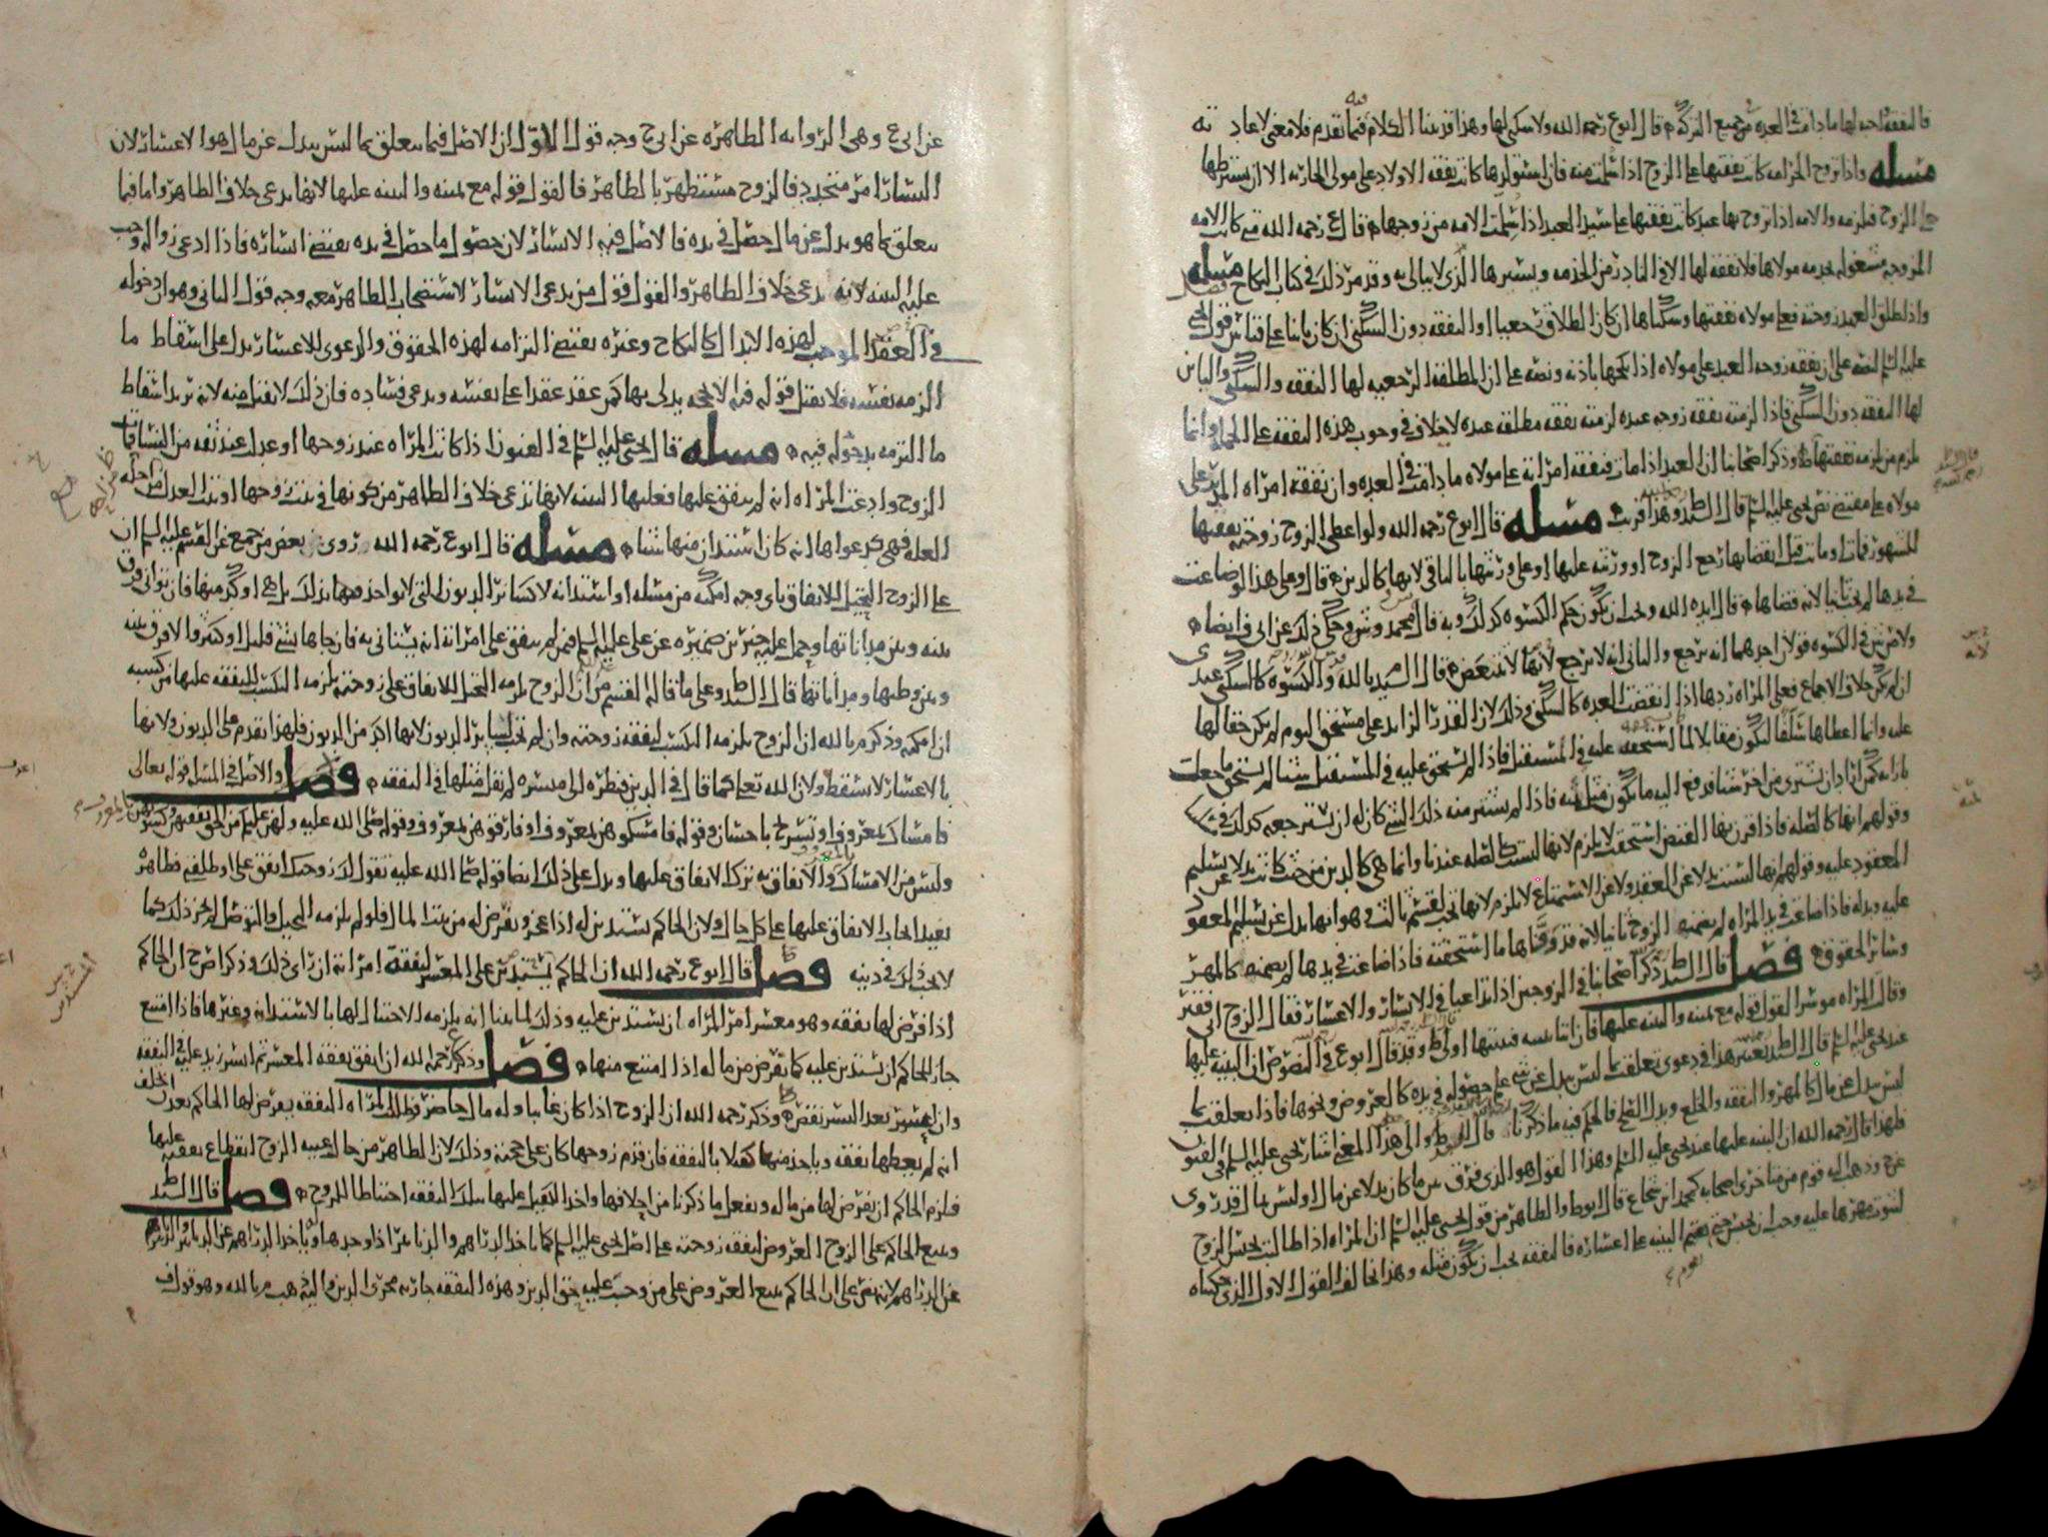 فالنفقة لها مادامت في العدة من جميع التركة قال ابوع رحمه الله ولا سكنى لها وهذا قد بينا الكلام فيما تقدم فلا معنى لاعادته
مسله واذا تزوج الحر امه كانت نفقتها على الزوج اذا سلمت منه فان استولدها كانت نفقة الاولاد على مولى الجارية الا ان يشترطها
على الزوج فيلزمه والامه اذا تزوج بها عبد كانت نفقتها على سيد العبد اذا سلمت الامه من زوجها قال ع رحمه الله متى كانت الامه
المزوجه مشغوله بخدمه مولاها فلا نفقة لها الا في النادر من الخدمه ويسيرها الذي لا يبالى به وقد مر ذلك في كتاب النكاح مسله
واذا طلق العبد زوجته فعلى مولاه نفقتها وسكناها ان كان الطلاق رجعيا او النفقه دون السكنى ان كان باينا على قياس قول يحيى
عليه السلم لنصه على ان نفقه زوجه العبد على مولاه اذا نكحها باذنه ونصه على ان المطلقه الرجعيه لها النفقه والسكنى والباين
لها النفقه دون السكنى فاذا لزمته نفقه زوجه عبده لزمته نفقه مطلقه عبده لا خلاف في وجوب هذه النفقه على الجمله وانما
يلزم من يلزمه نفقتها وذكر اصحابنا ان العبد اذا مات فنفقه امراته على مولاه ما دامت في العده وان نفقه امراه المدبر على
مولاه على مقتضى نص يحيى عليه السلم قال السيد وهذا قريب مسله قال ابوع رحمه الله ولو اعطى الزوج زوجته نفقتها
للشهور فماتت او مات قبل انقضايها رجع الزوج او ورثته عليها او على ورثتها بالباقي لانها كالدين قال وعلى هذا لو ضاعت
في يدها لم يجب ثانيا لانه قضاها قال ايده الله ويجب ان يكون حكم الكسوه كذلك وبه قال محمد وش وحكى ذلك عن ابي ف ايضا
ولاش في الكسوه قولان احدهما انه يرجع والثاني انه لا يرجع لانها لا تتبعض قال السيد بالله والكسوه كالسكنى عندى
ان لم يكن خلاف الاجماع فعلى المراه ردها اذا انقضت العده كالسكنى وذلك لان القدر الزايد على مستحق اليوم لم يكن حقا لها
عليه وانما اعطاها سلفا ليكون مقابلا لما تستحقه عليه في المستقبل فاذا لم تستحق عليه في المستقبل شيئا لم يستحق ما جعلت
بازايه كمن اراد ان يشترى من اخر شيئا فدفع اليه ما يكون مثل ثمنه فاذا لم يشتر منه ذلك الشي كان له ان يسترجعه كذلك في
وقولهم انها كالصله فاذا قرن بها القبض استحقت لا يلزم لانها ليست كالصله عندنا وانما هي كالدين من حيث كانت بدلا عن تسليم
المعقود عليه وقولهم انها ليست بدلا عن العقد ولا عن الاستمتاع لا يلزم لانها تجب لقسم ثالث هو انها بدل عن تسليم المعقود
عليه وبدله فاذا ضاعت في يد المراه لم يضمنها الزوج ثانيا لانه قد وفاها ما استحقته فاذا ضاعت في يدها لم يضمنها كالمهر
وساير الحقوق فصل قال السيد ذكر اصحابنا في الزوجين اذا تداعيا في الايسار والاعسار فقال الزوج انى فقير
وقالت المراه موسرا القول قوله مع يمينه والبينه عليها فان اتيا ببينه فبينتها اولى وقد قال ابوع في النصوص ان البينه عليها
عند يحيى عليه السلم قال السيد يعتبر هذا في دعوى تعلقت بما ليس ببدل عن شي على حصوله في يده كالعروض ونحوها فاذا تعلقت بما
ليس ببدل عن مال كالمهر والنفقه والخلع وبدل الصلح فالحكم فيه ما ذكرنا قال السيد والى هذا المعنى اشار يحيى عليه السلم في الفنون
فلهذا قال رحمه الله ان البينه عليها عند يحيى عليه السلم وهذا القول هو الذى فرق بين ما كان بدلا عن مال او ليس بمال قد روى
عن ح وذهب اليه قوم من متاخرى اصحابه كمحمد بن شجاع قال ابوط والظاهر من قول يحيى عليه السلم ان المراه اذا طالبت بحبس الزوج
لثبوت مهرها عليه وجب ان يحبس حتى يقيم البينه على اعساره فالنفقه يجب ان يكون مثله وهذا يخالف القول الاول الذى حكيناه
عن ابى ع وهى الروايه الظاهره عن ابى ح وجه قول الاول ان الاصل فيما يتعلق بما ليس ببدل عن مال هو الاعسار لان
اليسار امر متجدد فالزوج مستظهر بالظاهر فالقول قوله مع يمينه والبينه عليها لانها تدعى خلاف الظاهر واما فيما
يتعلق بما هو بدل عن مال حصل في يده فالاصل فيه الايسار لان حصول ما حصل في يده يقتضى ايساره فاذا ادعى زواله وجب
عليه البينه لانه يدعى خلاف الظاهر والقول قول من يدعى الايسار لاستصحاب الظاهر معه وجه قول الثاني وهو ان دخوله
في العقد الموجب لهذه الابدال كالنكاح وغيره يقتضى التزامه لهذه الحقوق والدعوى للاعسار يدل على اسقاط ما
الزمه نفسه فلا يقبل قوله فيه الا بحجه يدلى بها كمن عقد عقدا على نفسه ويدعى فساده فان ذلك لا يقبل منه لانه يريد اسقاط
ما التزمه بدخوله فيه مسله قال يحيى عليه السلم في الفنون اذا كانت المراه عند زوجها او عدل عند ثقه من النساء فغاب
الزوج وادعت المراه انه لم ينفق عليها فعليها البينه لانها تدعى خلاف الظاهر من كونها في بيت زوجها او بيت العدل
العله فهى كدعواها انه كان استدان منها شيئا مسله قال ابوع رحمه الله روى بعض من جمع عن القسم عليه السلم ان
على الزوج التحيل للانفاق باى وجه امكنه من مسله او استدانه لا كساير الديون التى لا يواخذ فيها بذلك بل هى اوكد منها فان توانى فرق
بينه وبين مداناتها وحمل عليه خبر بن ضميره عن على عليه السلم فيمن لم ينفق على امراته انه يستانى به فان جاها بشي قليل او كثير والا فرق بينه
وبين وطيها ومداناتها قال السيد وعلى ما قاله القسم من ان الزوج يلزمه التحيل للانفاق على زوجته يلزمه التكسب للنفقه عليها من كسبه
ان امكنه وذكر م بالله ان الزوج يلزمه التكسب لنفقه زوجته وان لم تجب لساير الديون لانها اكد من الديون فلهذا تقدم على الديون ولانها
بالاعسار لا تسقط ولان الله تعلى كما قال في الدين فنظره الى ميسره لم نقل مثلها في النفقه فصل والاصل في المسله قوله تعالى
فامساك بمعروف او تسريح باحسان وقوله فامسكوهن بمعروف او فارقوهن بمعروف وقوله صلى الله عليه ولهن عليكم من الحق نفقتهن وكسوتهن بالمعروف
وليس من الامساك والانفاق به ترك الانفاق عليها ويدل على ذلك ايضا قوله صلى الله عليه تقول لك زوجتك انفق على او طلقني فظاهره
يفيد ايجاب الانفاق عليها على كل حال ولان الحاكم يستدين له اذا عجز ويفرض له من بيت المال فلو لم يلزمه التحيل والتوصل لم يجز ذلك كما
لا يجب ذلك في دينه فصل قال ابوع رحمه الله ان الحاكم يستدين على المعسر لنفقه امراته ان راى ذلك وذكر اص ح ان الحاكم
اذا فرض لها نفقه وهو معسر امر المراه ان يستدين عليه وذلك لما بينا انه يلزمه الاحتيال لها بالاستدانه وغيرها فاذا امتنع
جاز للحاكم ان يستدين عليه كما يقرض من ماله اذا امتنع منها فصل وذكر ع رحمه الله ان ينفق نفقه المعسر ثم ايسر زيد عليه في النفقه
وان اعسر بعد اليسر نقص وذكر رحمه الله ان الزوج اذا كان غايبا وله مال حاضر فطلبت المراه النفقه يفرض لها الحاكم بعد ان تحلف
انه لم يعطها نفقه وياخذ منها كفيلا بالنفقه فان قدم زوجها كان على حجته وذلك لان الظاهر من حال غيبه الزوج انقطاع نفقته عليها
فيلزم الحاكم ان يفرض لها من ماله ويفعل ما ذكرنا من احلافها واخذ الكفيل عليها بتلك النفقه احتياطا للزوج فصل قال السيد
ويبيع الحاكم على الزوج العروض لنفقه زوجته على اصل يحيى عليه السلم كما ياخذ الدراهم والدنانير اذا وجدها وياخذ الدراهم عن الدنانير والدنانير
عن الدراهم لانه نص على ان الحاكم يبيع العروض على من وجب عليه حق الدين وهذه النفقه جاريه مجرى الدين واليه ذهب م بالله وهو قول ف